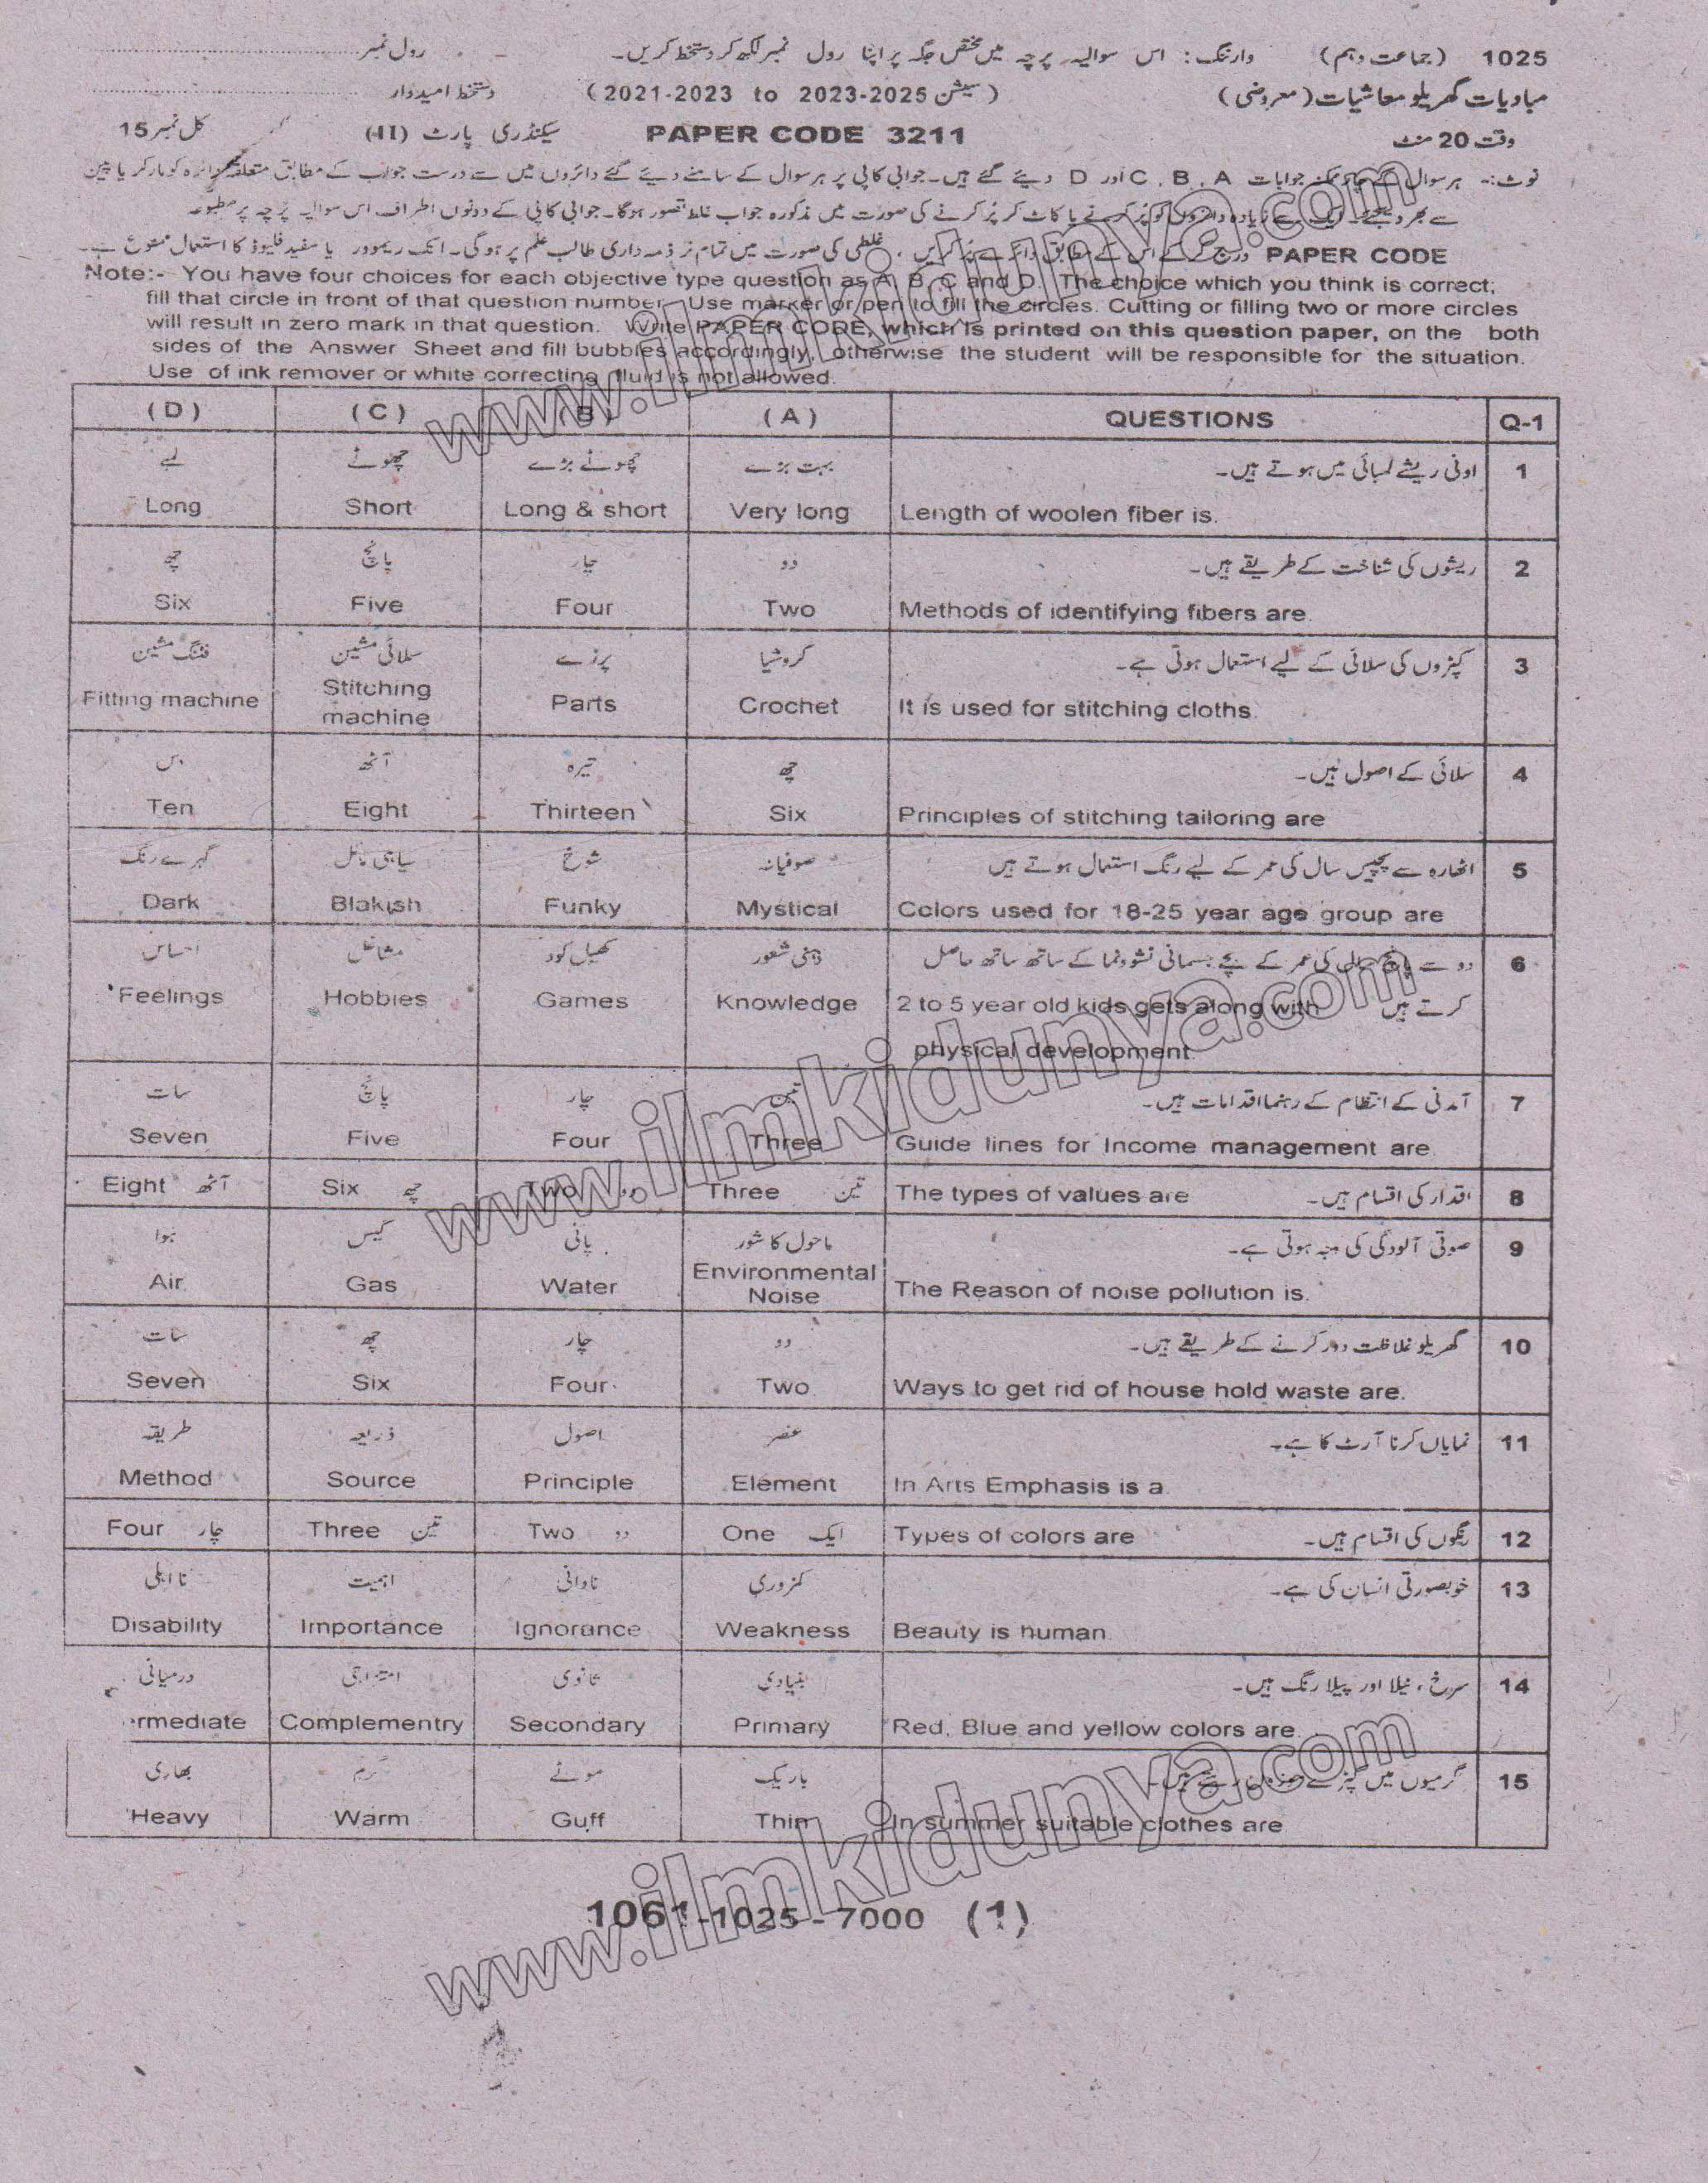 1025 (جماعت دہم) وارننگ: اس سوالیہ پرچہ میں مختص جگہ پر اپنا رول نمبر لکھ کر دستخط کریں۔ رول نمبر
مبادیات گھریلو معاشیات (معروضی) (سیشن 2021-2023 to 2023-2025) دستخط امیدوار
وقت 20 منٹ PAPER CODE 3211 سیکنڈری پارٹ (II) کل نمبر 15
نوٹ:- ہر سوال کے چار ممکنہ جوابات C , B , A اور D دیئے گئے ہیں۔ جوابی کاپی پر ہر سوال کے سامنے دیئے گئے دائروں میں سے درست جواب کے مطابق متعلقہ دائرہ کو مارکر یا پین
سے بھر دیجئے۔ ایک سے زیادہ دائروں کو پُر کرنے یا کاٹ کر پُر کرنے کی صورت میں مذکورہ جواب غلط تصور ہوگا۔ جوابی کاپی کے دونوں اطراف اس سوالیہ پرچہ پر مطبوعہ
PAPER CODE درج کر کے اس کے مطابق دائرے پُر کریں، غلطی کی صورت میں تمام تر ذمہ داری طالب علم پر ہوگی۔ انک ریموور یا سفید فلیوڈ کا استعمال ممنوع ہے۔
Note:- You have four choices for each objective type question as A, B, C and D. The choice which you think is correct;
fill that circle in front of that question number. Use marker or pen to fill the circles. Cutting or filling two or more circles
will result in zero mark in that question. Write PAPER CODE, which is printed on this question paper, on the both
sides of the Answer Sheet and fill bubbles accordingly, otherwise the student will be responsible for the situation.
Use of ink remover or white correcting fluid is not allowed.
(D) (C) (B) (A) QUESTIONS Q-1
لمبے چھوٹے چھوٹے بڑے بہت بڑے اونی ریشے لمبائی میں ہوتے ہیں۔ 1
Long Short Long & short Very long Length of woolen fiber is.
چھ پانچ چار دو ریشوں کی شناخت کے طریقے ہیں۔ 2
Six Five Four Two Methods of identifying fibers are.
فٹنگ مشین سلائی مشین پرزے کروشیا کپڑوں کی سلائی کے لیے استعمال ہوتی ہے۔ 3
Fitting machine Stitching machine Parts Crochet It is used for stitching cloths.
دس آٹھ تیرہ چھ سلائی کے اصول ہیں۔ 4
Ten Eight Thirteen Six Principles of stitching tailoring are
گہرے رنگ سیاہی مائل شوخ صوفیانہ اٹھارہ سے پچیس سال کی عمر کے لیے رنگ استعمال ہوتے ہیں 5
Dark Blakish Funky Mystical Colors used for 18-25 year age group are
احساس مشاغل کھیل کود ذہنی شعور دو سے پانچ سال کی عمر کے بچے جسمانی نشوونما کے ساتھ ساتھ حاصل 6
Feelings Hobbies Games Knowledge 2 to 5 year old kids gets along with کرتے ہیں
physical development.
سات پانچ چار تین آمدنی کے انتظام کے رہنما اقدامات ہیں۔ 7
Seven Five Four Three Guide lines for Income management are
Eight آٹھ Six چھ Two دو Three تین The types of values are اقدار کی اقسام ہیں۔ 8
ہوا گیس پانی ماحول کا شور صوتی آلودگی کی وجہ ہوتی ہے۔ 9
Air Gas Water Environmental Noise The Reason of noise pollution is.
سات چھ چار دو گھریلو غلاظت دور کرنے کے طریقے ہیں۔ 10
Seven Six Four Two Ways to get rid of house hold waste are.
طریقہ ذریعہ اصول عنصر نمایاں کرنا آرٹ کا ہے۔ 11
Method Source Principle Element In Arts Emphasis is a
Four چار Three تین Two دو One ایک Types of colors are رنگوں کی اقسام ہیں۔ 12
نااہلی اہمیت نادانی کمزوری خوبصورتی انسان کی ہے۔ 13
Disability Importance Ignorance Weakness Beauty is human
درمیانی امتزاجی ثانوی بنیادی سرخ، نیلا اور پیلا رنگ ہیں۔ 14
ermediate Complementry Secondary Primary Red, Blue and yellow colors are.
بھاری گرم موٹے باریک گرمیوں میں کپڑے موزوں رہتے ہیں۔ 15
Heavy Warm Guff Thin In summer suitable clothes are
1061-1025-7000 (1)
www.ilmkidunya.com
www.ilmkidunya.com
www.ilmkidunya.com